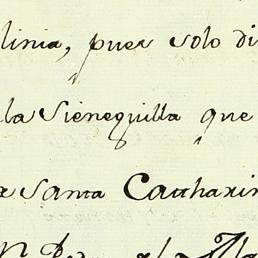 linia, pues solo di
la Sieneguilla que
Santa Catharin